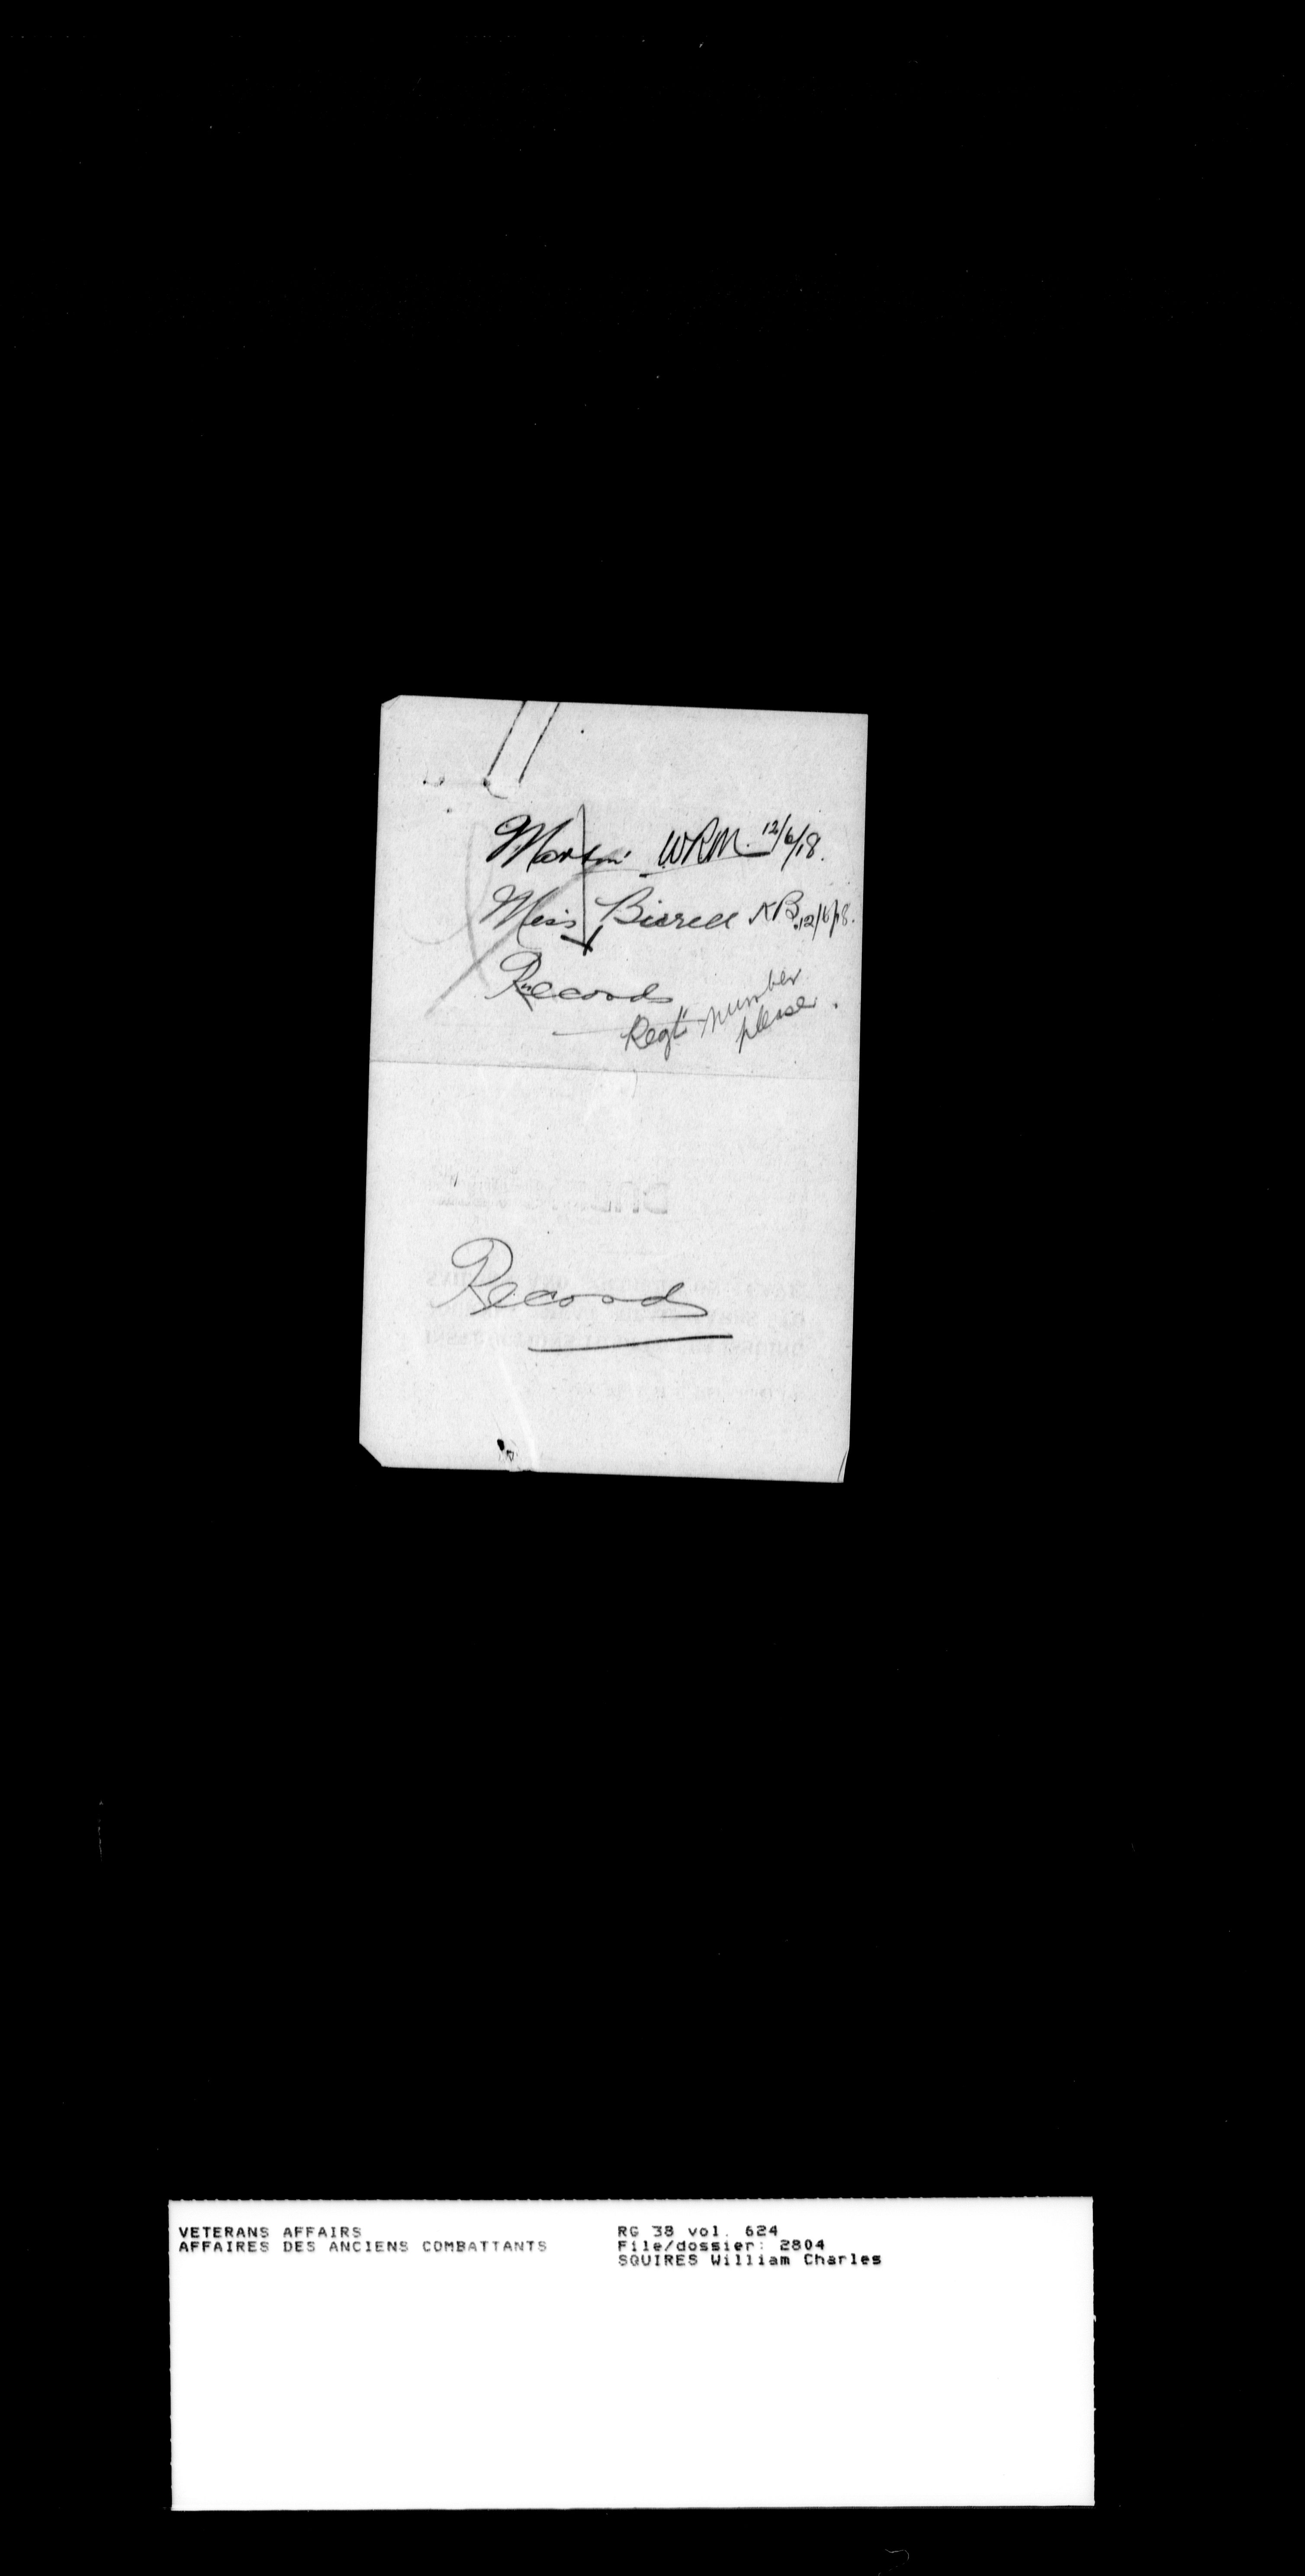 Martin WRM. 12/6/18.
Miss Birrell KB. 12/6/18.
Records
Regt'l number
please.
Records
VETERANS AFFAIRS
AFFAIRES DES ANCIENS COMBATTANTS
RG 38 vol. 624
File/dossier: 2804
SQUIRES William Charles